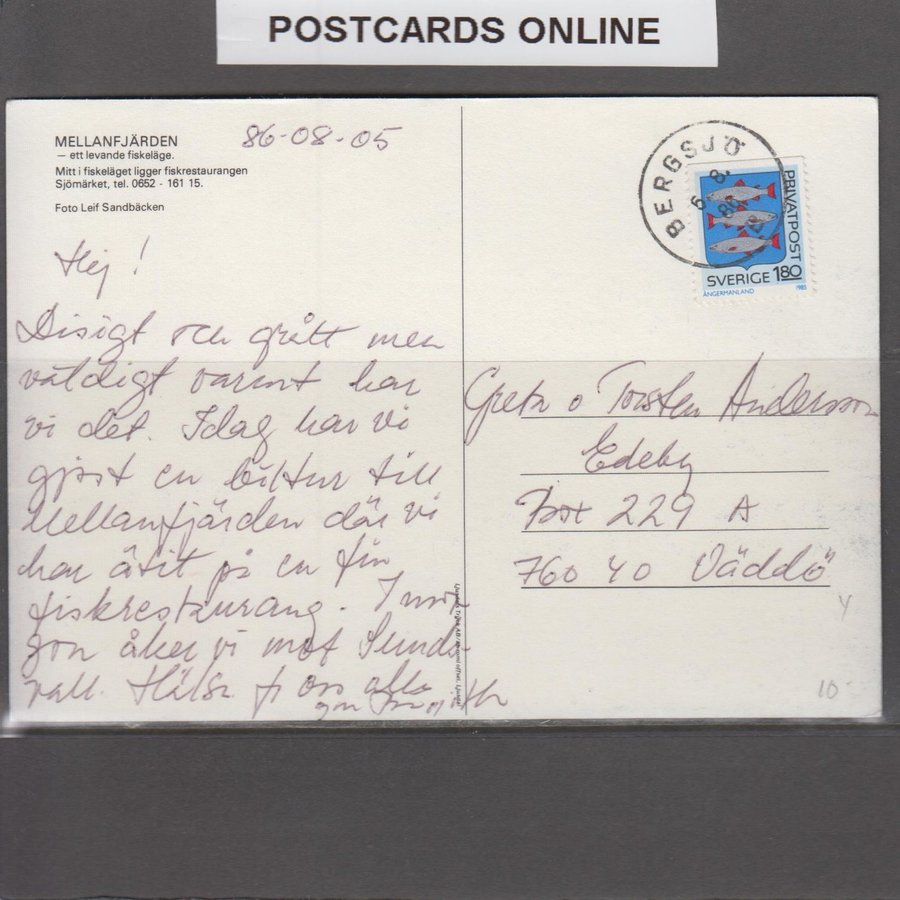 POSTCARDS ONLINE
MELLANFJÄRDEN
— ett levande fiskeläge.
Mitt i fiskeläget ligger fiskrestaurangen
Sjömärket, tel. 0652 - 161 15.
Foto Leif Sandbäcken
86-08-05
Hej!
Disigt och grått men
väldigt varmt har
vi det. Idag har vi
gjort en biltur till
Mellanfjärden där vi
har ätit på en fin
fiskrestaurang. I mor
gon åker vi mot Sunds
vall. Hälsn fr oss alla
BERGSJÖ
6. 8. 86
PRIVATPOST
SVERIGE 1.80
ÅNGERMANLAND 1985
Greta o Torsten Andersson
Edeby
Box 229 A
760 40 Väddö
Y
10